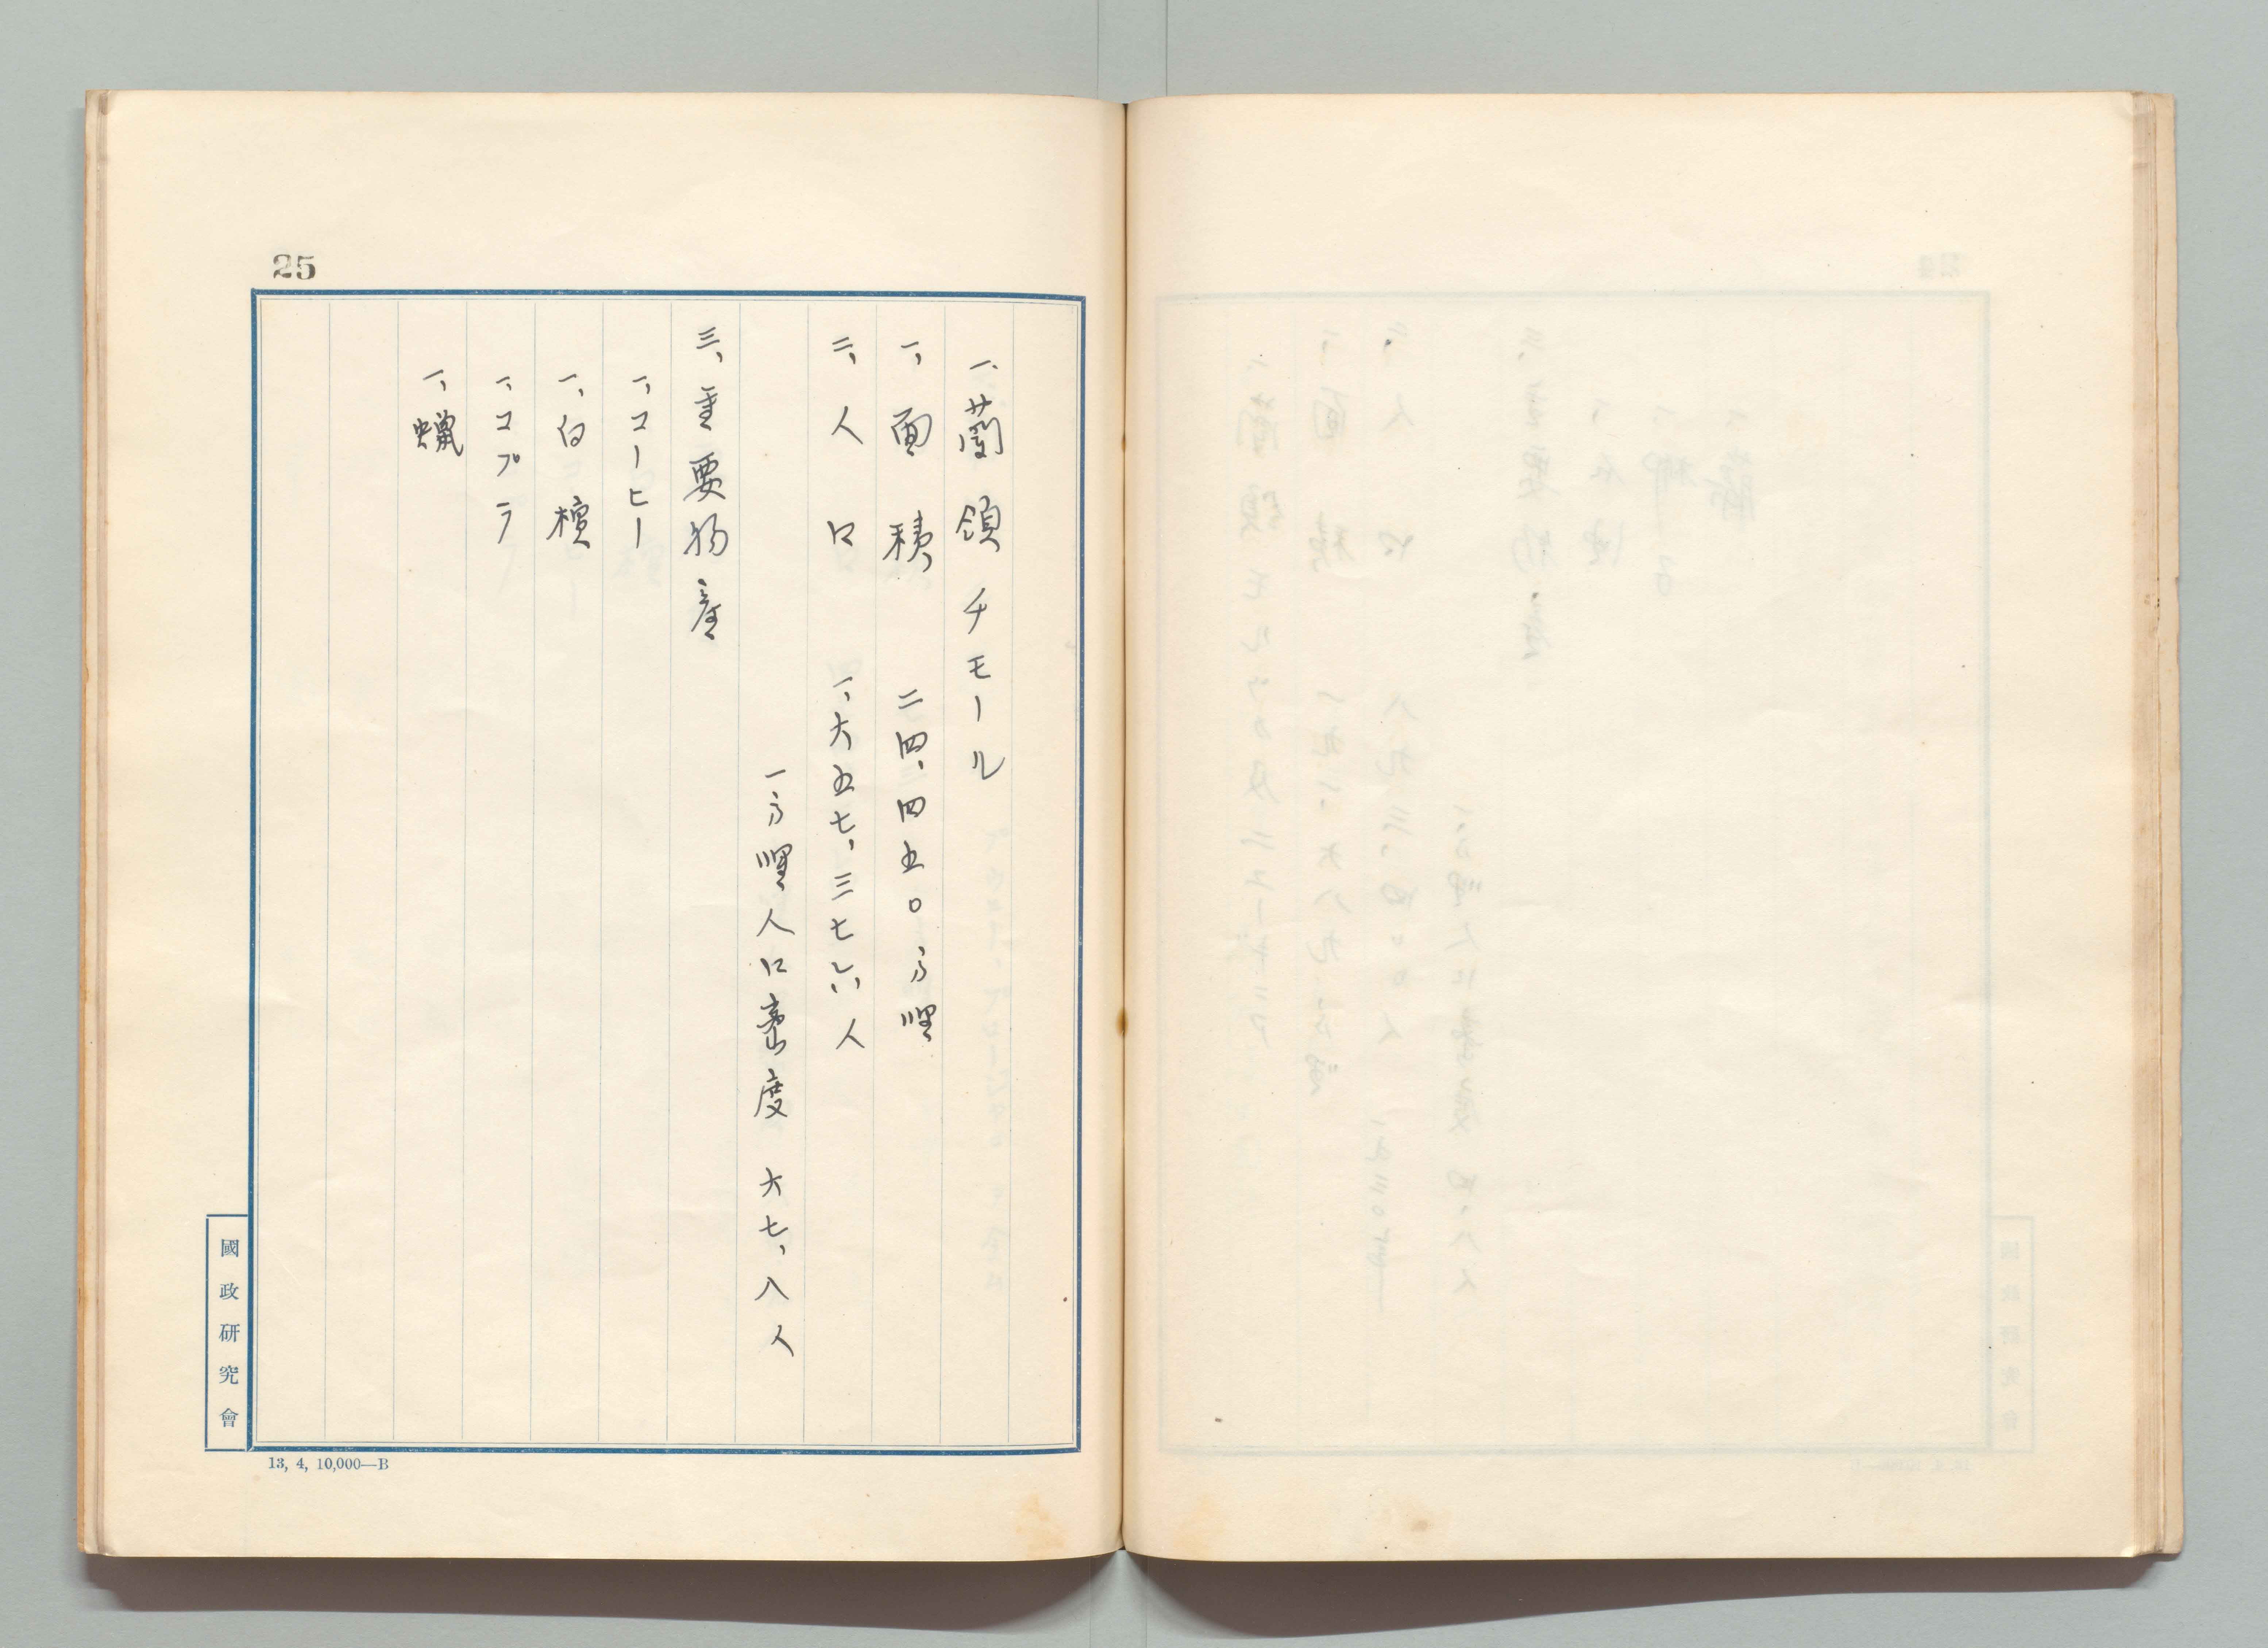 25
一、蘭領チモール
一、面積 二四、四五〇方哩
二、人口 一、六五七、三七六人
一方哩人口密度 六七、八人
三、重要物産
一、コーヒー
一、白檀
一、コプラ
一、蠟
國政研究會
13, 4, 10,000—B